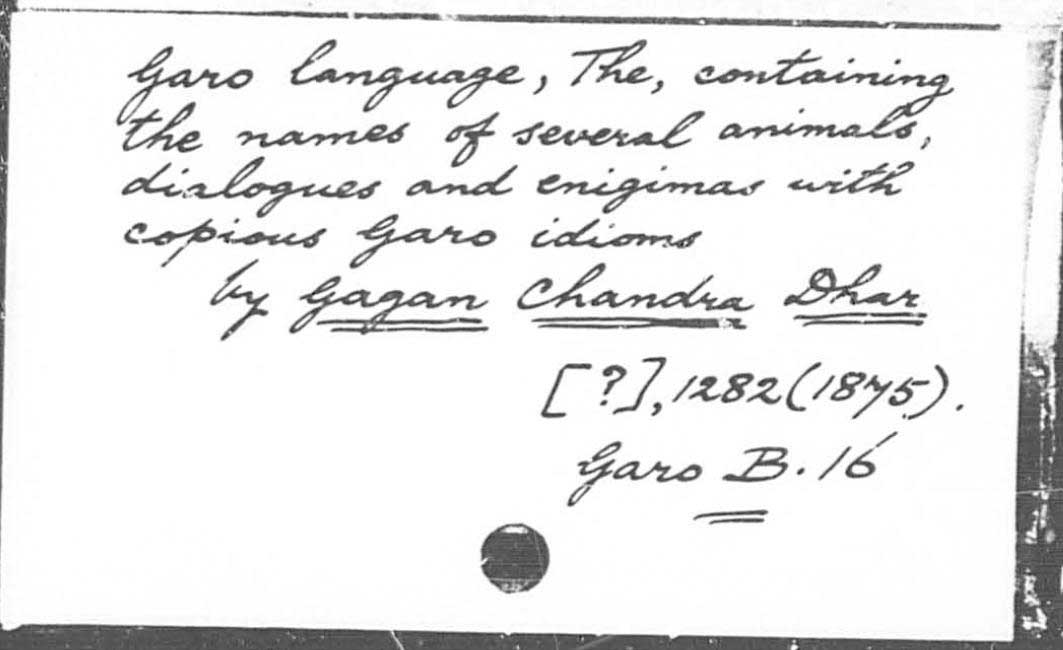 Garo language, The, containing
the names of several animals,
dialogues and enigimas with
copious Garo idioms
by Gagan Chandra Dhar
[?], 1282 (1875).
Garo B. 16